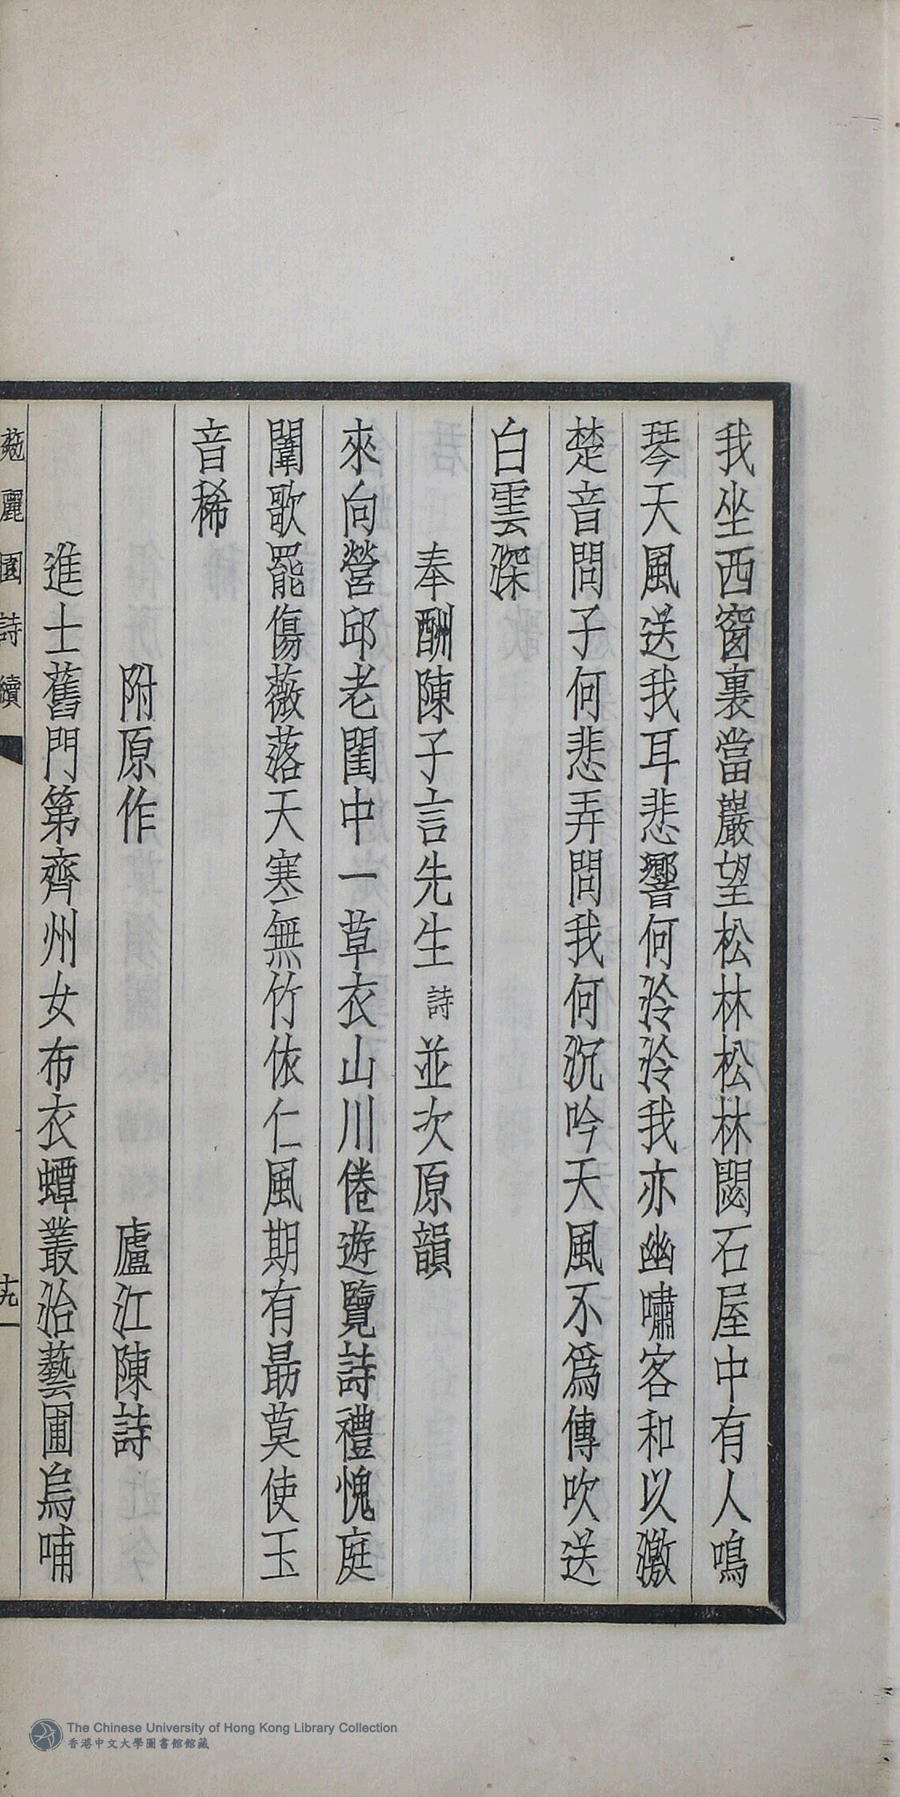 我坐西窗裏當巖望松林松林閟石屋中有人鳴
琴天風送我耳悲響何泠泠我亦幽嘯客和以激
楚音問子何悲弄問我何沉吟天風不爲傳吹送
白雲深
奉酬陳子言先生詩並次原韻
來向營邱老閨中一草衣山川倦遊覽詩禮愧庭
闈歌罷傷薇落天寒無竹依仁風期有勗莫使玉
音稀
附原作 廬江陳詩
進士舊門第齊州女布衣蟫叢治藝圃烏哺
麗園詩續
十九
The Chinese University of Hong Kong Library Collection
香港中文大學圖書館館藏